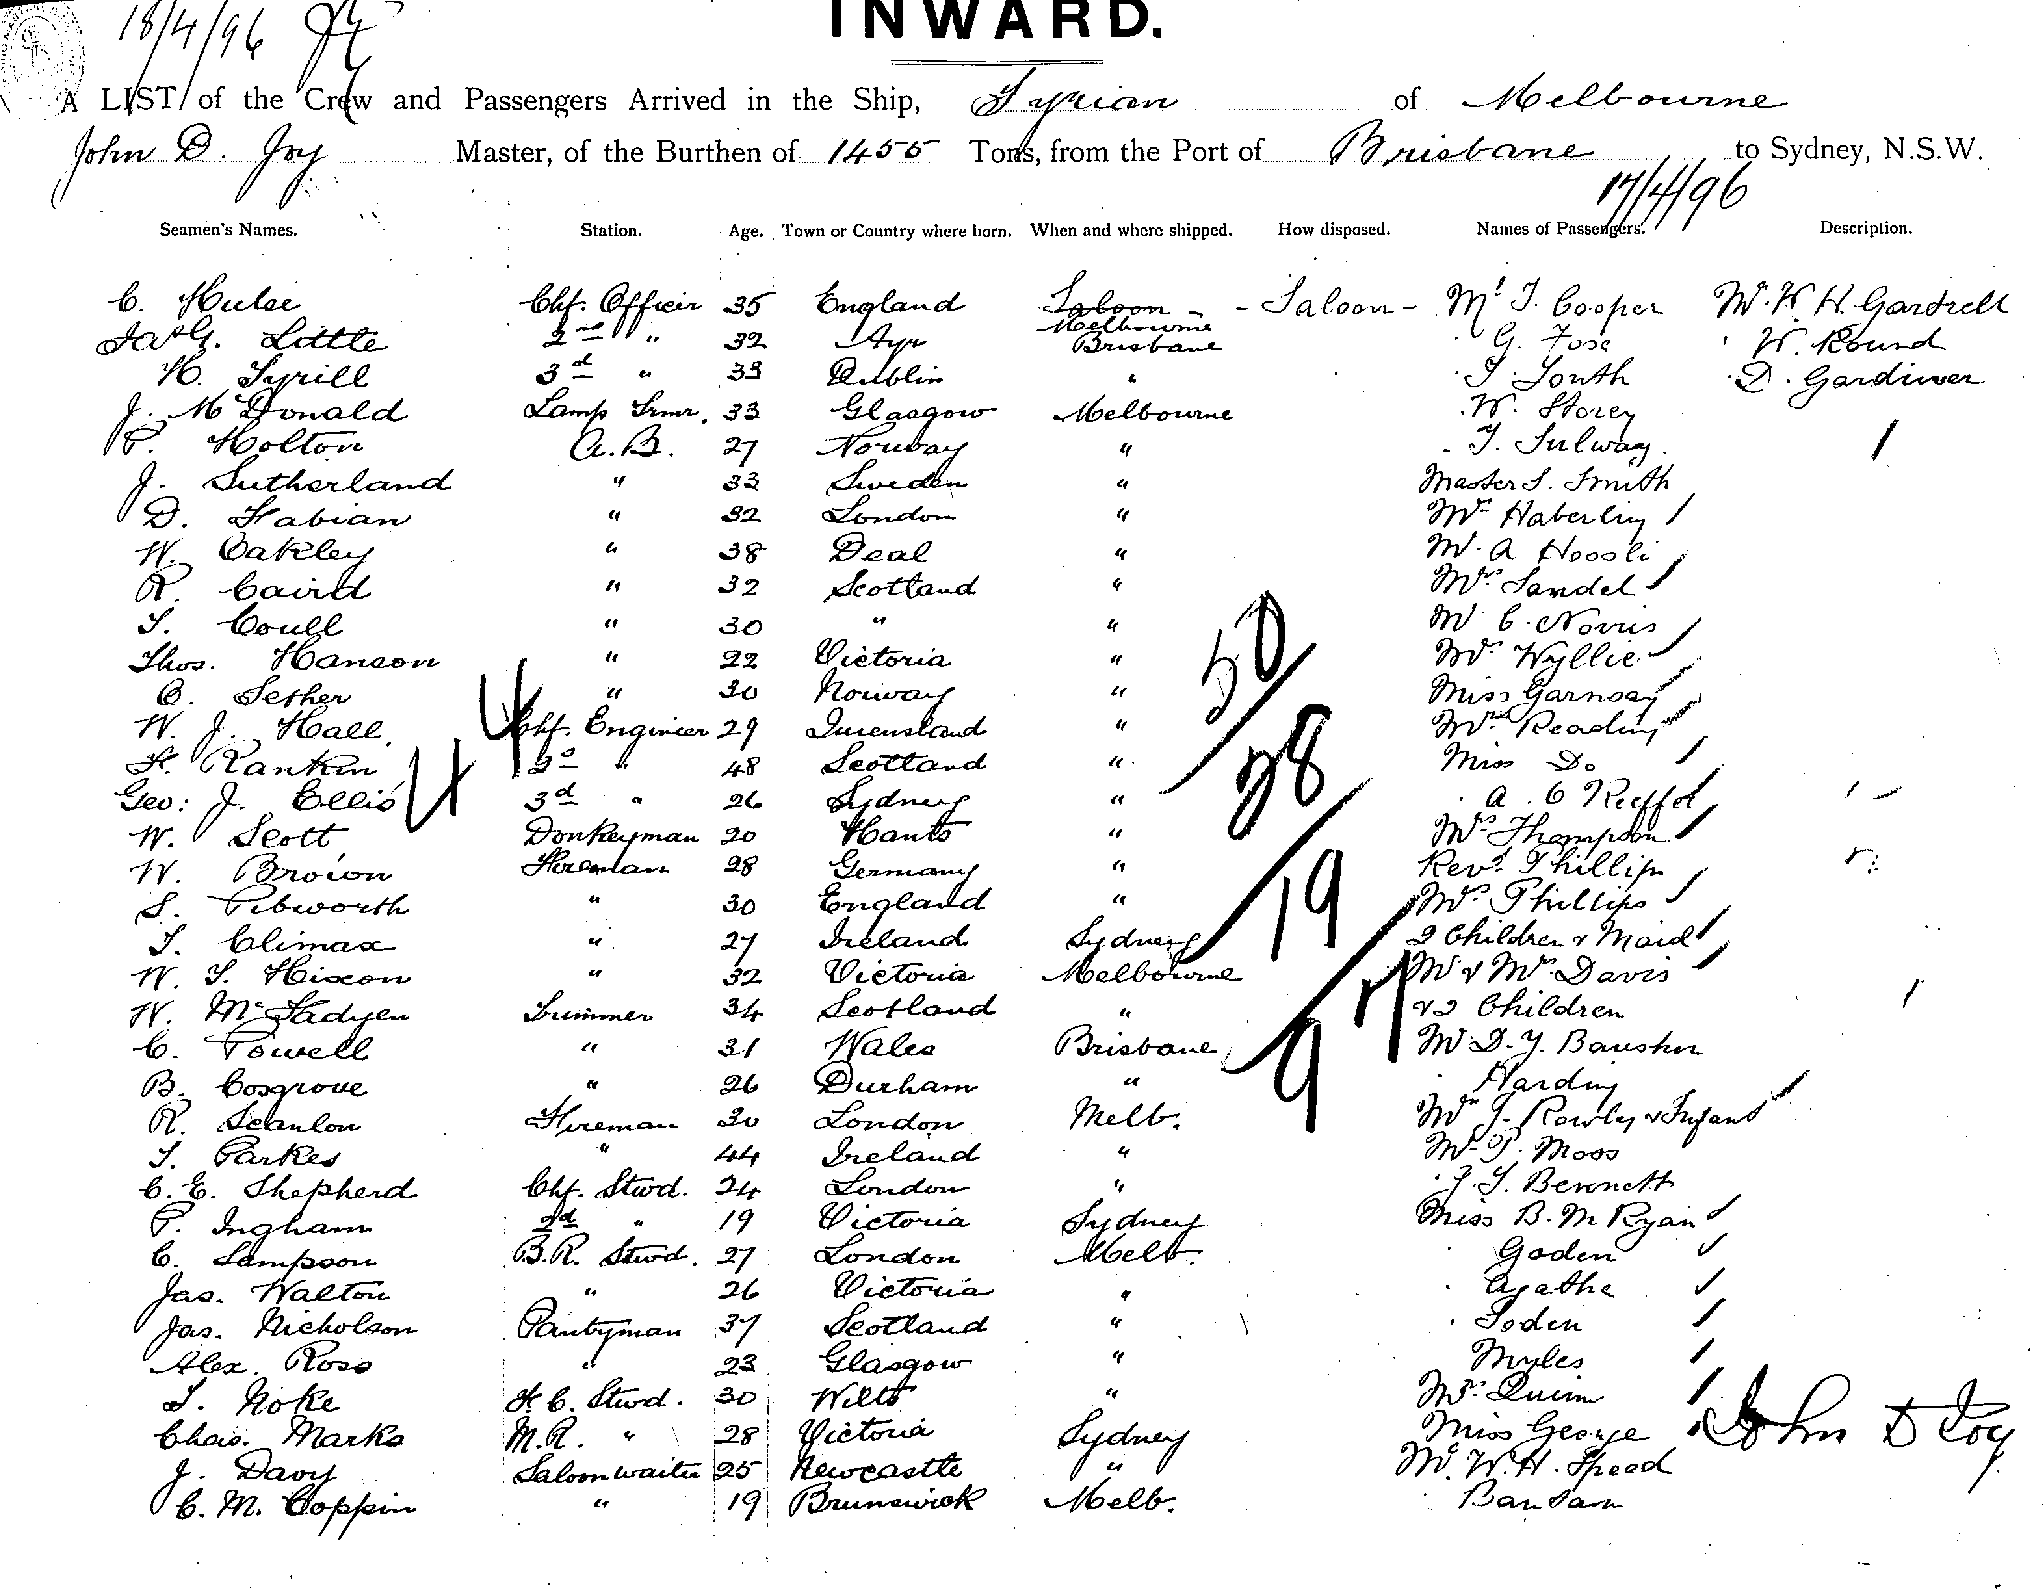 18/4/96
INWARD.
A LIST of the Crew and Passengers Arrived in the Ship, Tyrian of Melbourne
John D. Joy Master, of the Burthen of 1455 Tons, from the Port of Brisbane to Sydney, N.S.W.
17/4/96
Seamen's Names. Station. Age. Town or Country where born. When and where shipped. How disposed. Names of Passengers. Description.
C. Hulse Chf. Officer 35 England Saloon - - Saloon - Mr T. Cooper Mr. H. H. Gartrell
Jas G. Little 2nd " 32 Ayr Melbourne Brisbane G. W. Round
H. Tyrill 3d " 33 Dublin " T. South D. Gardiner
J. McDonald Lamp Trmr. 33 Glasgow Melbourne W. Storey
P. Holton A.B. 27 Norway " T. Sulway.
J. Sutherland " 33 Sweden " Master S. Smith
D. Fabian " 32 London " Mrs Haberling
W. Oakley " 38 Deal " Mr. A
R. Caird " 32 Scotland " Mrs Sandel
T. Coull " 30 " " Mr C. Norris
Thos. Hanson " 22 Victoria " Mrs Wyllie
O. Sether " 30 Norway " Miss Garnsay
W. J. Hall Chf. Engineer 29 Queensland " Mrs Reading
F. Rankin 2d " 48 Scotland " Miss Do
Geo: J. Ellis 3d " 26 Sydney " A. C
W. Scott Donkeyman 20 Hants " Mrs Thompson
W. Brown Fireman 28 Germany " Revd Phillips
S. Pibworth " 30 England " Mrs Phillips
T. Climax " 27 Ireland Sydney 2 Children & Maid
W. T. Hixon " 32 Victoria Melbourne Mr & Mrs Davis
W. McFadyen Trimmer 34 Scotland " & 2 Children
C. Powell " 31 Wales Brisbane Mr D. Y.
B. Cosgrove " 26 Durham " Harding
R. Scanlon Fireman 30 London Melb. Mrs J. Rowley & Infant
T. Parkes " 44 Ireland " Mr P. Moss
C. E. Shepherd Chf. Stwd. 24 London " J. T. Bennett
P. Ingham 2d " 19 Victoria Sydney Miss B. M Ryan
C. Sampson B.R. Stwd. 27 London Melb. Goden
Jas. Walton " 26 Victoria " Agatha
Jas. Nicholson Pantryman 37 Scotland " Soden
Alex. Ross " 23 Glasgow " Myles
T. Noke F. C. Stwd. 30 Wilts " Mrs Quinn
Chas. Marks M.R. " 28 Victoria Sydney Miss George John D Joy
J. Davy Saloon waiter 25 Newcastle " Mr. W. H. Speed
C. M. Coppin " 19 Brunswick Melb.
50
28
19
9
4
4